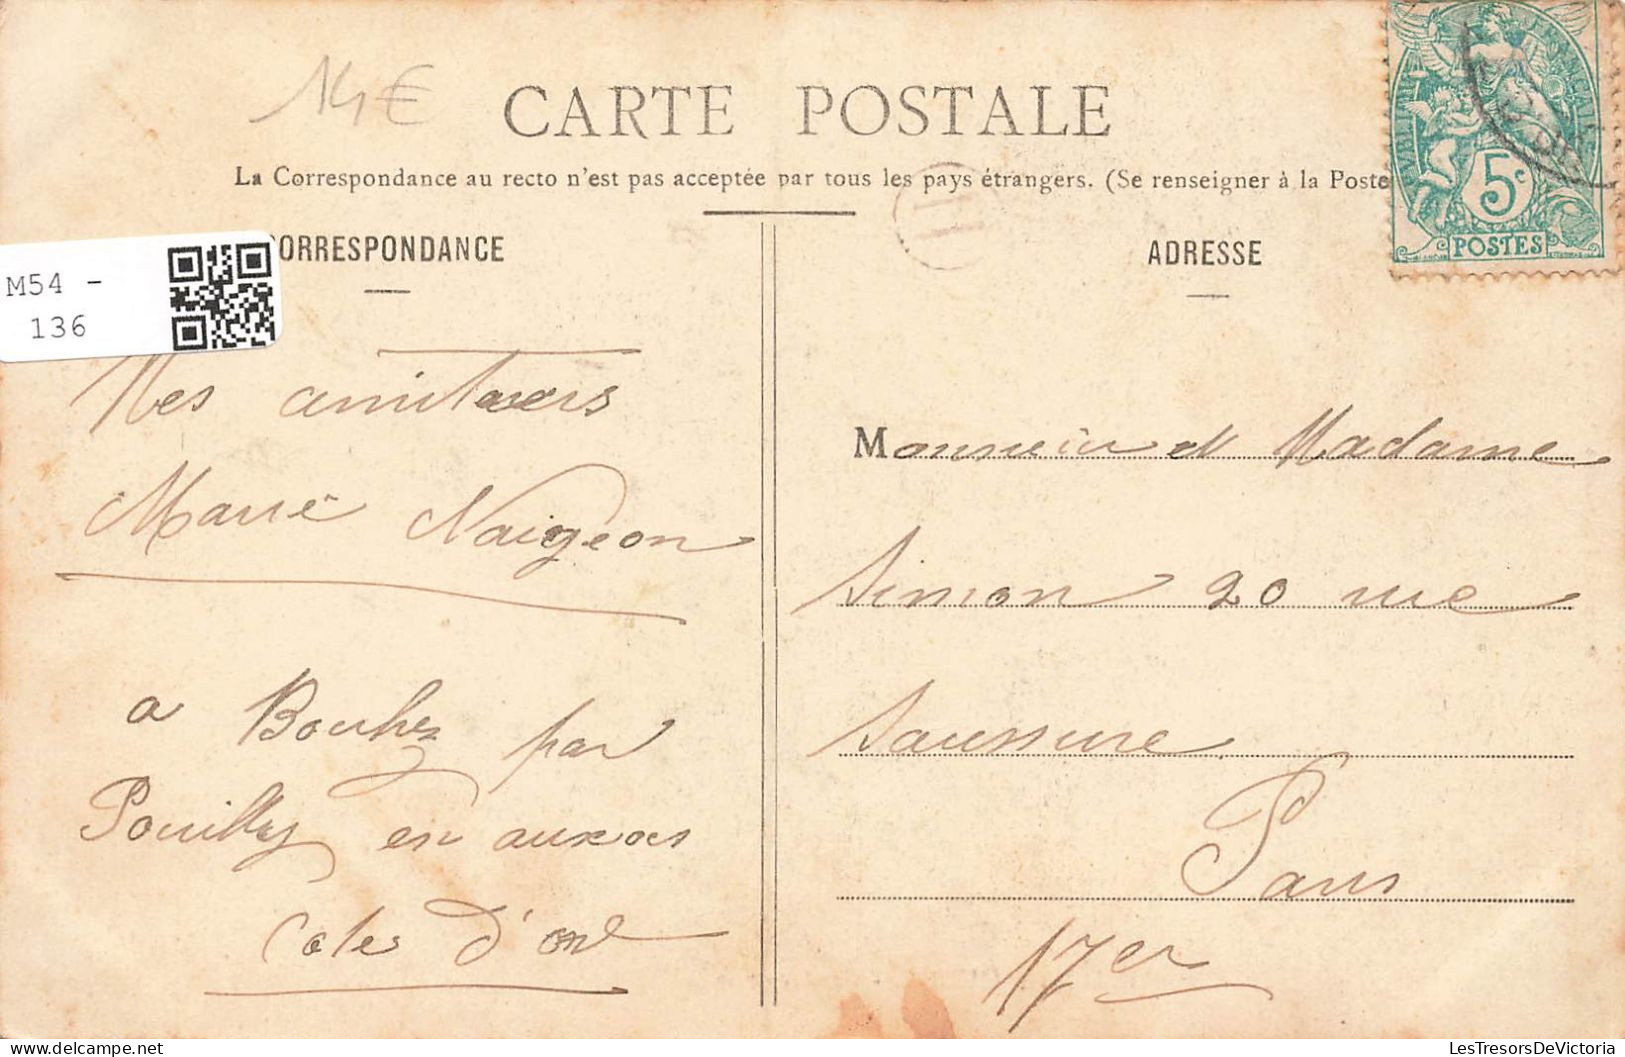 14€
CARTE POSTALE
La Correspondance au recto n'est pas acceptée par tous les pays étrangers. (Se renseigner à la Poste
ORRESPONDANCE
ADRESSE
5c
POSTES
M54 -
136
Mes
Marie Naigeon
a Bouhey par
Pouilly en auxois
Cotes d'or
Monsieur et Madame
Simon 20 rue
Saussure
Paris
17er
LesTresorsDeVictoria